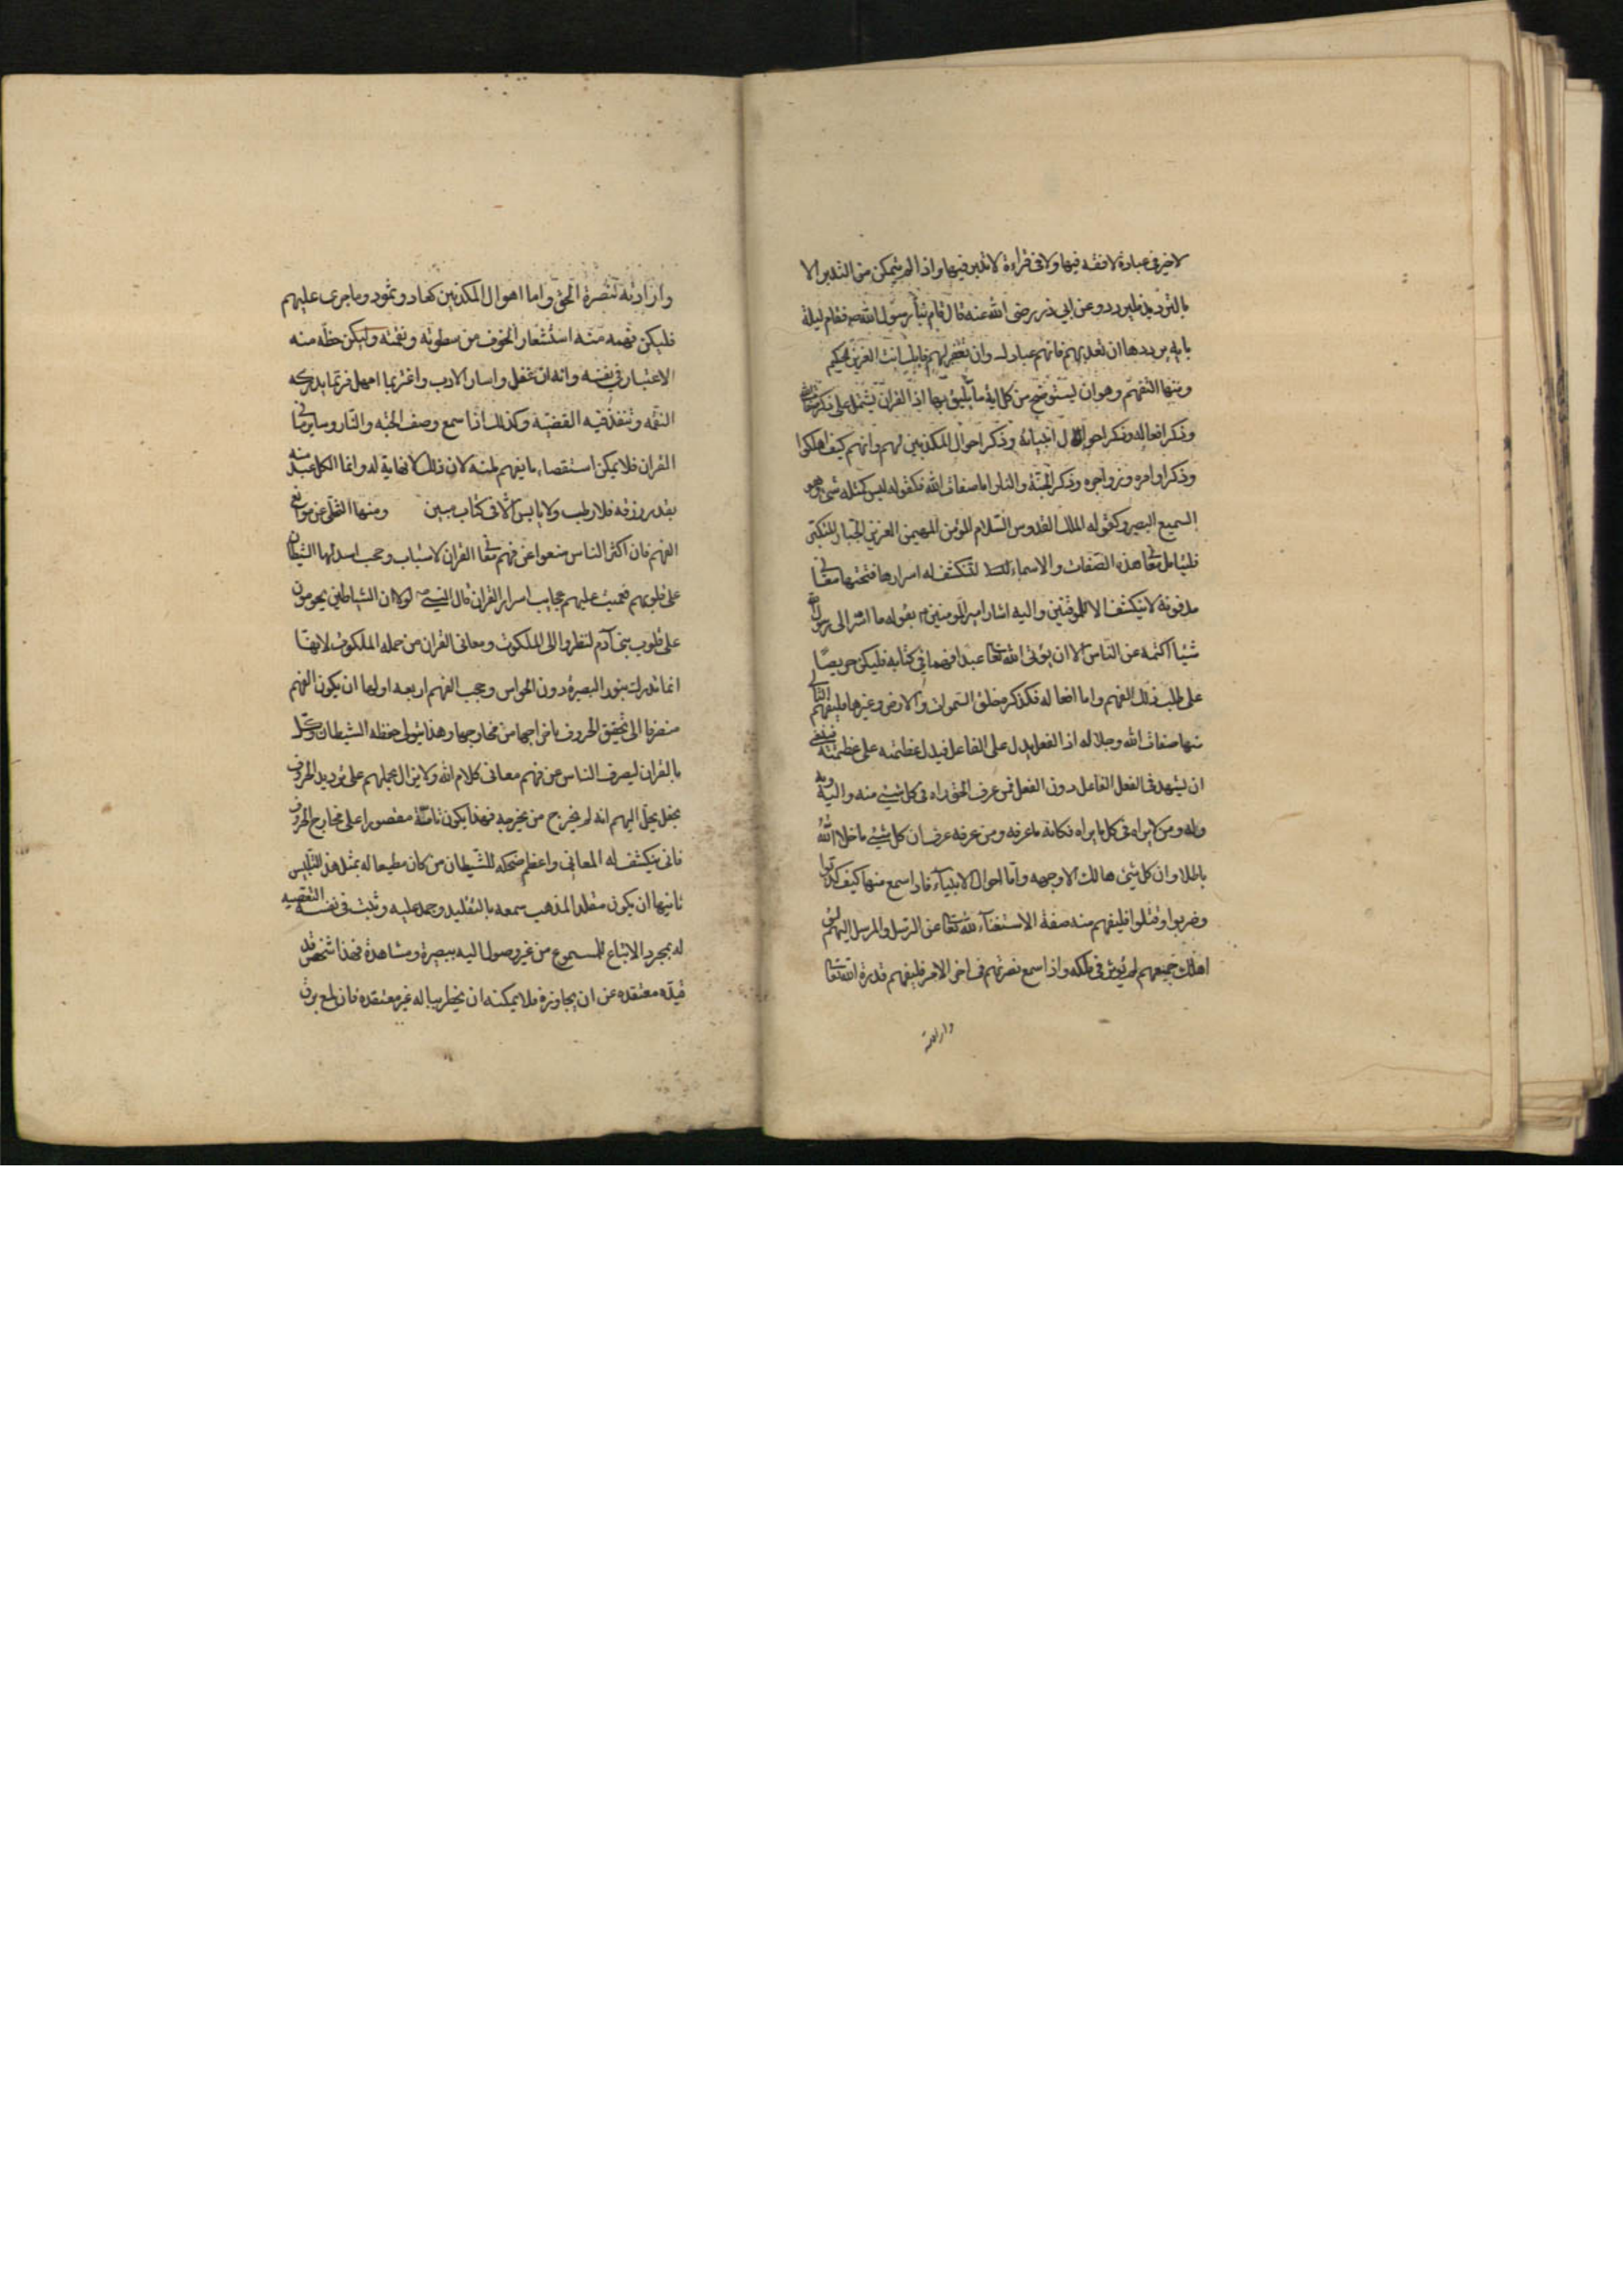 لاخير فى عبادة لا فقه فيها ولا فى قراءة لا تدبر فيها واذا لم يتمكن من التدبر الا
بالترديد فليردد وعن ابي ذر رضى الله عنه قال قام بنا رسول الله صم فقام ليلة
باية يرددها ان تعذبهم فانهم عبادك وان تغفر لهم فانك انت العزيز الحكيم
ومنها التفهم وهو ان يستوضح من كل اية ما يليق بها اذ القران يشتمل على ذكر صفات الله
وذكر افعاله وذكر احوال انبيائه وذكر احوال المكذبين لهم وانهم كيف اهلكوا
وذكر اوامره وزواجره وذكر الجنة والنار اما صفات الله فكقوله ليس كمثله شئ وهو
السميع البصير وكقوله الملك القدوس السلام المؤمن المهيمن العزيز الجبار المتكبر
فليتامل معانى هذه الصفات والاسماء لتنكشف له اسرارها فتحتها معانى
مدفونة لا ينكشف الا للموفقين واليه اشار امير المومنين بقوله ما اسر الى رسول الله
شيئا اكتمه عن الناس الا ان يؤتى الله تعا عبدا فهما فى كتابه فليكن حريصا
على طلب ذلك الفهم واما افعاله فكذكر خلق السموات والارض وغيرها فليفهم التالى
منها صفات الله وجلاله اذ الفعل يدل على الفاعل فيدل عظمته على عظمته فينبغى
ان يشهد فى الفعل الفاعل دون الفعل فمن عرف الحق راه فى كل شيئ منه واليه وبه
وله ومن لايراه فى كل ما يراه فكانه ما عرفه ومن عرفه عرف ان كل شيئ ما خلا الله
باطل وان كل شيئ هالك الا وجهه واما احوال الانبياء فاذا سمع منها كيف كذبوا
وضربوا وقتلوا فليفهم منه صفة الاستغناء لله تعا عن الرسل والمرسل اليهم لو
اهلك جميعهم لم يؤثر فى ملكه واذا سمع نصرتهم فى اخر الامر فليفهم قدرة الله تعا
وارادته
وارادته لنصرة الحق واما اهوال المكذبين كعاد وثمود وما جرى عليهم
فليكن فهمه منه استشعار الخوف من سطوته ونقمته وليكن حظه منه
الاعتبار فى نفسه وانه ان غفل واساء الادب واغتر بما امهل فربما يدركه
النقمه وتنفذ فيه القضية وكذلك اذا سمع وصف الجنه والنار وساير ما فى
القران فلا يمكن استقصاء ما يفهم منه لان ذلك لا نهاية له وانما لكل عبد منه
بقدر رزقه فلا رطب ولا يابس الا فى كتاب مبين ومنها التخلى عن موانع
الفهم فان اكثر الناس منعوا عن فهم معانى القران لاسباب وحجب اسدلها الشيطان
على قلوبهم فعميت عليهم عجايب اسرار القران قال النبى لولا ان الشياطين يحومون
على قلوب بنى آدم لنظروا الى الملكوت ومعانى القران من جملة الملكوت لانها
انما تدرك بنور البصيرة دون الحواس وحجب الفهم اربعه اولها ان يكون الفهم
منصرفا الى تحقيق الحروف باخراجها من مخارجها وهذا يتولى حفظه الشيطان وكل
بالقران ليصرف الناس عن فهم معانى كلام الله ولا يزال يحملهم على ترديد الحروف
يخيل اليهم انه لم يخرج من مخرجه فهذا يكون تامله مقصورا على مخارج الحروف
فانى ينكشف له المعانى واعظم ضحكه للشيطان من كان مطيعا له بمثل هذا التلبيس
ثانيها ان يكون مقلدا لمذهب سمعه بالتقليد وجمد عليه وثبت فى نفسه التعصب
له بمجرد الاتباع للمسموع من غير وصول اليه ببصيرة ومشاهدة فهذا شخص قد
قيده معتقده عن ان يجاوزه فلا يمكنه ان يخطر بباله غير معتقده فان لمع برق